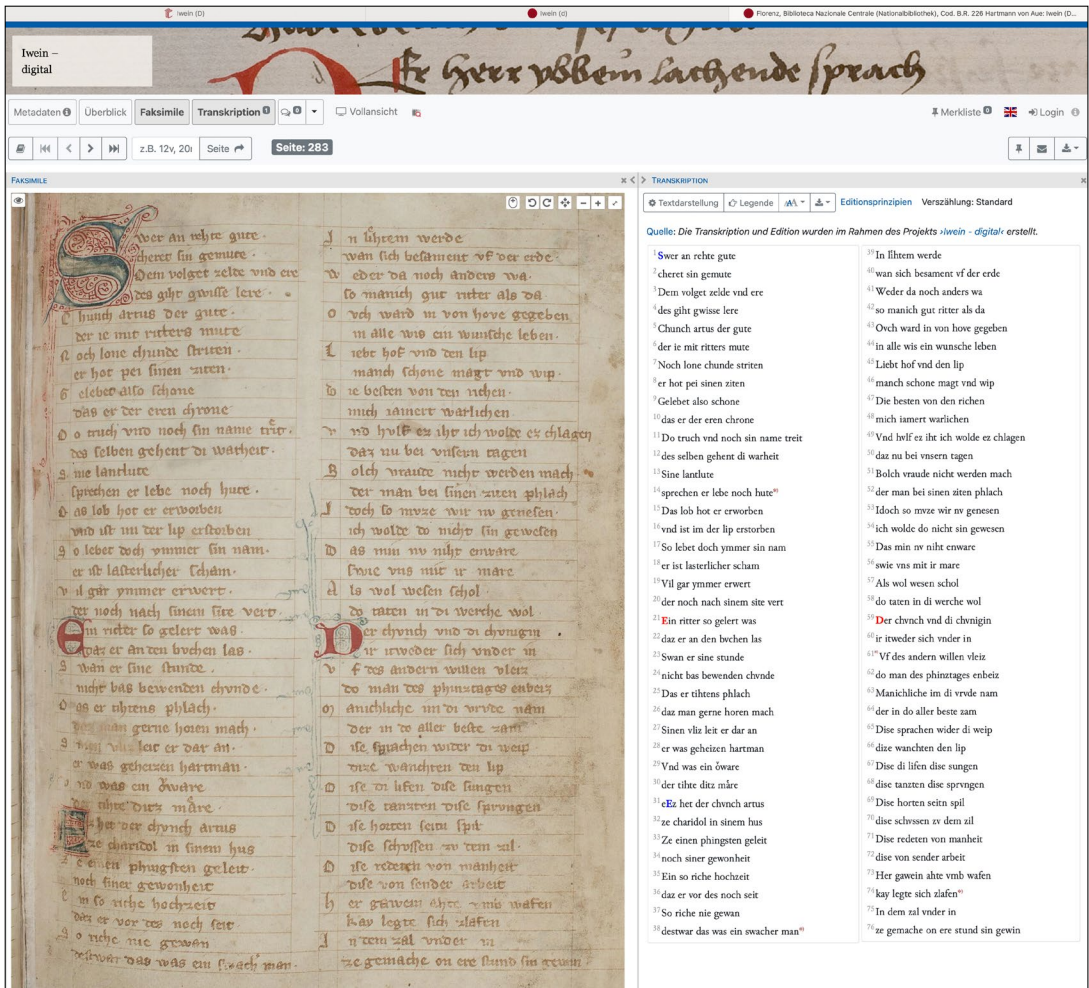 Iwein (D)
Iwein (d)
Florenz, Biblioteca Nazionale Centrale (Nationalbibliothek), Cod. B.R. 226 Hartmann von Aue: Iwein (D...
Iwein –
digital
Er herr ybbein lachende sprach
Metadaten
Überblick
Faksimile
Transkription 1
0
Vollansicht
Merkliste 0
Login
z.B. 12v, 20r
Seite
Seite: 283
FAKSIMILE
Swer an rehte gute.
cheret sin gemute.
Dem volget zelde vnd ere
des giht gwisse lere.
Chunch artus der gute.
der ie mit ritters mute
Noch lone chunde striten.
er hot pei sinen ziten.
Gelebet also schone
das er der eren chrone
Do truch vnd noch sin name treit.
des selben gehent di warheit.
Sine lantlute
sprechen er lebe noch hute.
Das lob hot er erworben
vnd ist im der lip erstorben
So lebet doch ymmer sin nam.
er ist lasterlicher scham.
Vil gar ymmer erwert.
der noch nach sinem site vert.
Ein ritter so gelert was.
daz er an den bvchen las.
Swan er sine stunde.
nicht bas bewenden chvnde.
Das er tihtens phlach.
daz man gerne horen mach.
Sinen vliz leit er dar an.
er was geheizen hartman.
Vnd was ein ôware
der tihte ditz måre.
Ez het der chvnch artus
ze charidol in sinem hus
Ze einen phingsten geleit.
noch siner gewonheit
Ein so riche hochzeit
daz er vor des noch seit.
So riche nie gewan
destwar das was ein swach man.
In lihtem werde
wan sich besament vf der erde.
Weder da noch anders wa.
so manich gut ritter als da
Ovch ward in von hove gegeben
in alle wis ein wunsche leben.
Liebt hof vnd den lip
manch schone magt vnd wip.
Die besten von den richen.
mich iamert warlichen.
Vnd hvlf ez iht ich wolde ez chlagen
daz nu bei vnsern tagen
Solch vraude nicht werden mach.
der man bei sinen ziten phlach
Idoch so mvze wir nv genesen.
ich wolde do nicht sin gewesen
Das min nv niht enware
swie vns mit ir mare
Als wol wesen schol.
do taten in di werche wol.
Der chvnch vnd di chvnigin
ir itweder sich vnder in
Vf des andern willen vleiz
do man des phinztages enbeiz
Manichliche im di vrvde nam
der in do aller beste zam
Dise sprachen wider di weip
dize wanchten den lip
Dise di lifen dise sungen
dise tanzten dise sprvngen
Dise horten seitn spil
dise schvssen zv dem zil.
Dise redeten von manheit
dise von sender arbeit
Her gawein ahte vmb wafen
kay legte sich zlafen
In dem zal vnder in
ze gemache on ere stund sin gewin
TRANSKRIPTION
Textdarstellung
Legende
AA
Editionsprinzipien
Verszählung: Standard
Quelle: Die Transkription und Edition wurden im Rahmen des Projekts ›iwein - digital‹ erstellt.
1 Swer an rehte gute
2 cheret sin gemute
3 Dem volget zelde vnd ere
4 des giht gwisse lere
5 Chunch artus der gute
6 der ie mit ritters mute
7 Noch lone chunde striten
8 er hot pei sinen ziten
9 Gelebet also schone
10 das er der eren chrone
11 Do truch vnd noch sin name treit
12 des selben gehent di warheit
13 Sine lantlute
14 sprechen er lebe noch hute
15 Das lob hot er erworben
16 vnd ist im der lip erstorben
17 So lebet doch ymmer sin nam
18 er ist lasterlicher scham
19 Vil gar ymmer erwert
20 der noch nach sinem site vert
21 Ein ritter so gelert was
22 daz er an den bvchen las
23 Swan er sine stunde
24 nicht bas bewenden chvnde
25 Das er tihtens phlach
26 daz man gerne horen mach
27 Sinen vliz leit er dar an
28 er was geheizen hartman
29 Vnd was ein ôware
30 der tihte ditz måre
31 eEz het der chvnch artus
32 ze charidol in sinem hus
33 Ze einen phingsten geleit
34 noch siner gewonheit
35 Ein so riche hochzeit
36 daz er vor des noch seit
37 So riche nie gewan
38 destwar das was ein swacher man
39 In lihtem werde
40 wan sich besament vf der erde
41 Weder da noch anders wa
42 so manich gut ritter als da
43 Ovch ward in von hove gegeben
44 in alle wis ein wunsche leben
45 Liebt hof vnd den lip
46 manch schone magt vnd wip
47 Die besten von den richen
48 mich iamert warlichen
49 Vnd hvlf ez iht ich wolde ez chlagen
50 daz nu bei vnsern tagen
51 Bolch vraude nicht werden mach
52 der man bei sinen ziten phlach
53 Idoch so mvze wir nv genesen
54 ich wolde do nicht sin gewesen
55 Das min nv niht enware
56 swie vns mit ir mare
57 Als wol wesen schol
58 do taten in di werche wol
59 Der chvnch vnd di chvnigin
60 ir itweder sich vnder in
61 Vf des andern willen vleiz
62 do man des phinztages enbeiz
63 Manichliche im di vrvde nam
64 der in do aller beste zam
65 Dise sprachen wider di weip
66 dize wanchten den lip
67 Dise di lifen dise sungen
68 dise tanzten dise sprvngen
69 Dise horten seitn spil
70 dise schvssen zv dem zil
71 Dise redeten von manheit
72 dise von sender arbeit
73 Her gawein ahte vmb wafen
74 kay legte sich zlafen
75 In dem zal vnder in
76 ze gemache on ere stund sin gewin